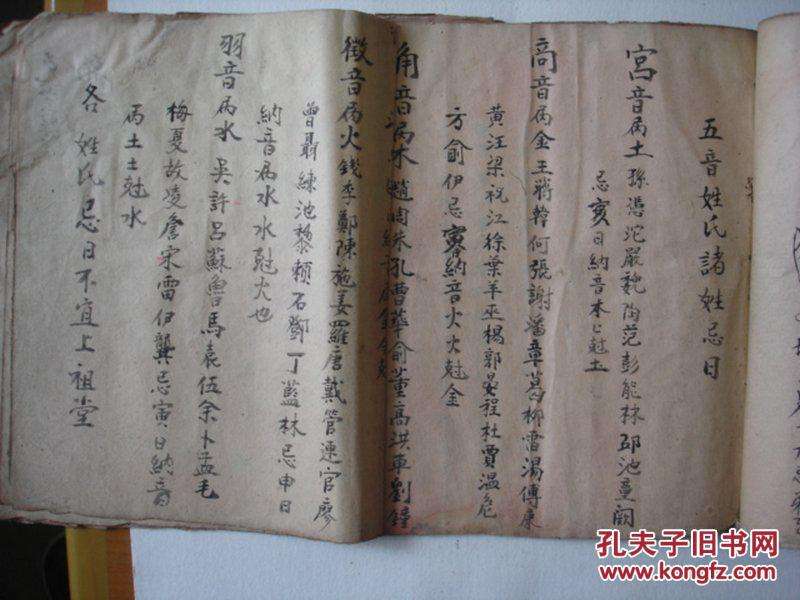 五音姓氏諸姓忌日
宮音屬土孫馮沱嚴魏陶范彭熊林邱池童闕
忌亥日納音木木尅土
商音屬金王蔣韓何張謝潘章葛柳雷湯傅康
黃汪梁祝江徐葉羊巫楊郭晏程杜賈溫危
方俞伊忌寅納音火火尅金
角音屬木趙周朱孔曹華俞董高洪車劉鐘
徵音屬火錢李鄭陳施姜羅唐戴管連官廖
曾聶練池黎賴石鄧丁藍林忌申日
納音屬水水尅火也
羽音屬水吳許呂蘇魯馬袁伍余卜孟毛
梅夏故凌詹宋雷伊龔忌寅日納音
屬土土尅水
各姓氏忌日不宜上祖堂
孔夫子旧书网
www.kongfz.com